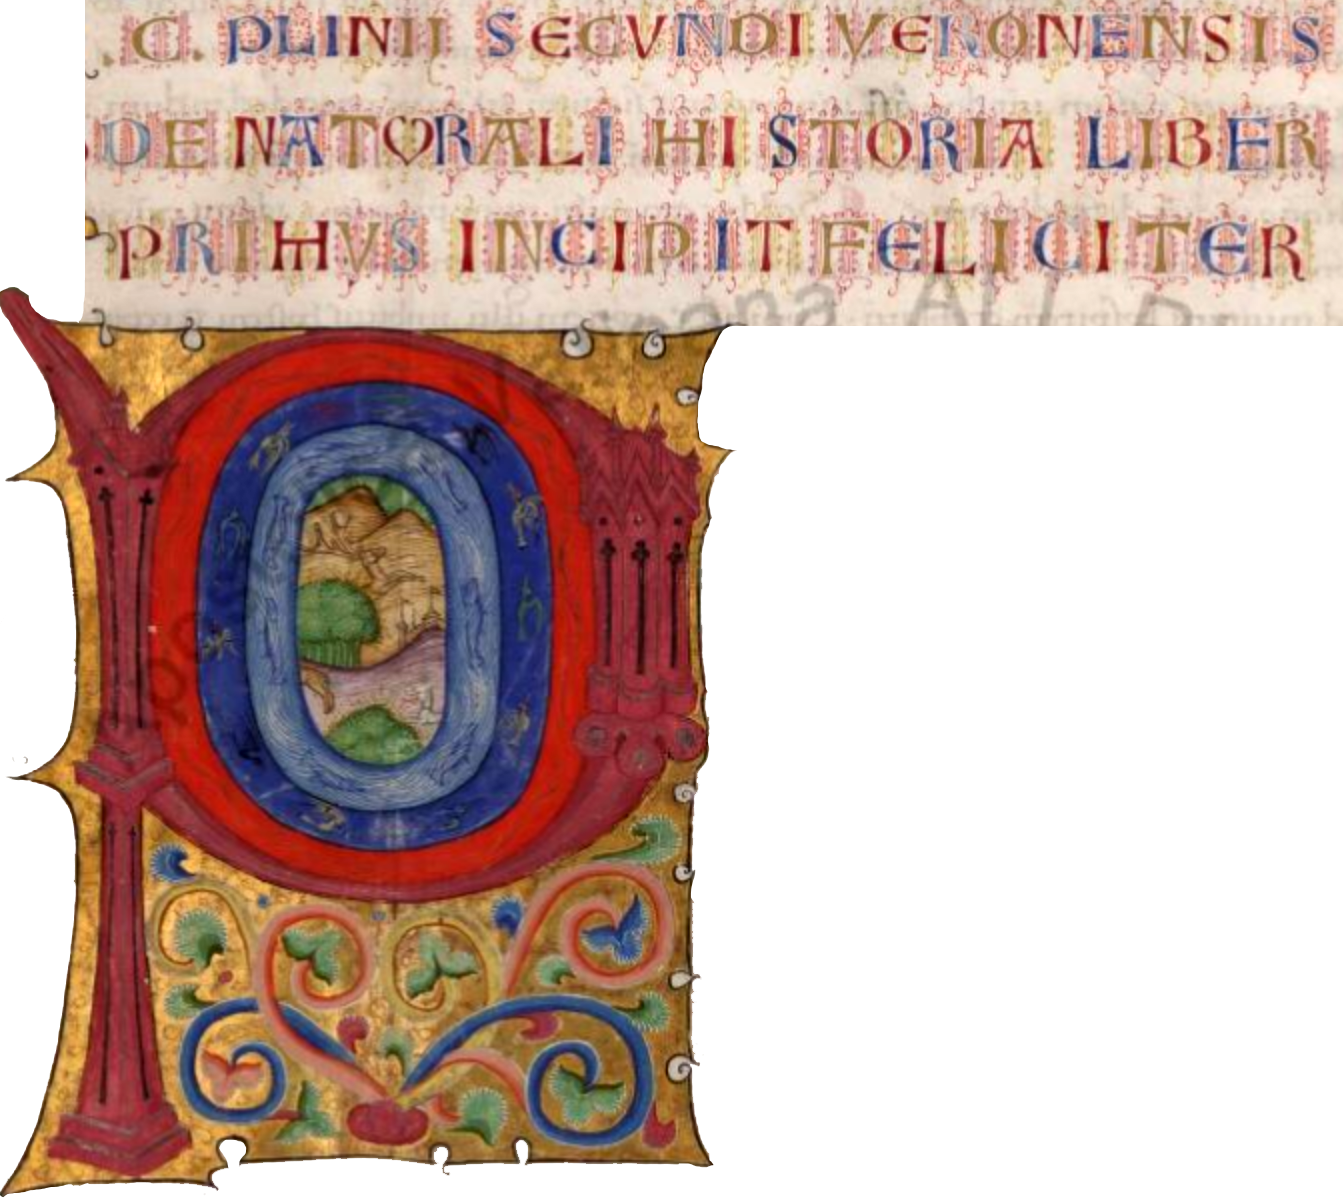 .C. PLINII SECVNDI VERONENSIS
DE NATVRALI HISTORIA LIBER
PRIMVS INCIPIT FELICITER
P